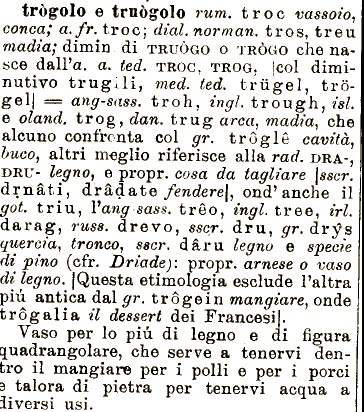 trògolo e truògolo rum. troc vassoio,
conca; a. fr. troc; dial. norman. tros, treu
madia; dimin di TRUÒGO o TRÒGO che na-
sce dall'a. a. ted. TROC, TROG, |col dimi-
nutivo trugili, med. ted. trügel, trö-
gel| = ang-sass. troh, ingl. trough, isl.
e oland. trog, dan. trug arca, madia, che
alcuno confronta col gr. trôglê cavità,
buco, altri meglio riferisce alla rad. DRA-,
DRU- legno, e propr. cosa da tagliare |sscr.
dṛnâti, drâdate fendere|, ond' anche il
got. triu, l'ang sass. trêo, ingl. tree, irl.
darag, russ. drevo, sscr. dru, gr. drŷs
quercia, tronco, sscr. dâru legno e specie
di pino (cfr. Driade): propr. arnese o vaso
di legno. |Questa etimologia esclude l'altra
piú antica dal gr. trôgein mangiare, onde
trôgalia il dessert dei Francesi|.
Vaso per lo piú di legno e di figura
quadrangolare, che serve a tenervi den-
tro il mangiare per i polli e per i porci
e talora di pietra per tenervi acqua a
diversi usi.